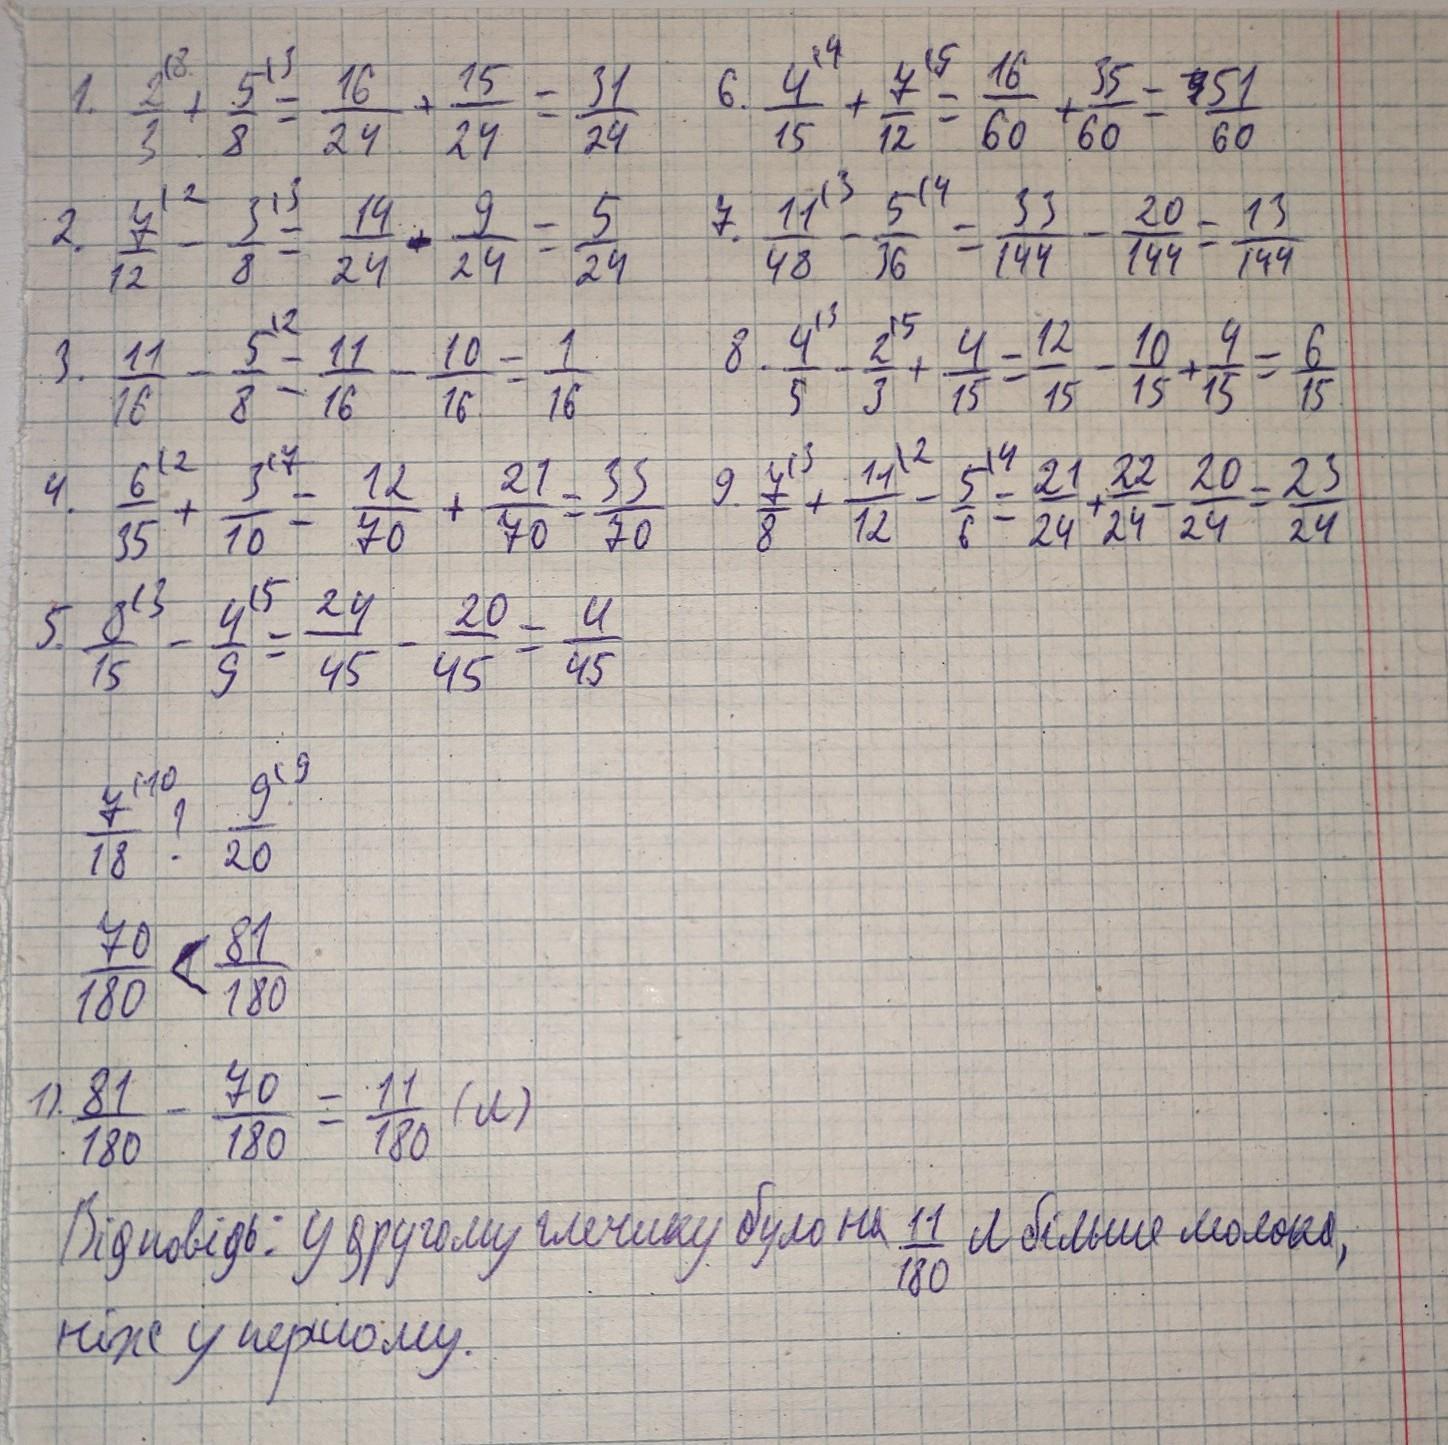 1. 2/3 (8 + 5/8 (3 = 16/24 + 15/24 = 31/24
2. 7/12 (2 - 3/8 (3 = 14/24 - 9/24 = 5/24
3. 11/16 - 5/8 (2 = 11/16 - 10/16 = 1/16
4. 6/35 (2 + 3/10 (7 = 12/70 + 21/70 = 33/70
5. 8/15 (3 - 4/9 (5 = 24/45 - 20/45 = 4/45
6. 4/15 (4 + 7/12 (5 = 16/60 + 35/60 = 51/60
7. 11/48 (3 - 5/36 (4 = 33/144 - 20/144 = 13/144
8. 4/5 (3 - 2/3 (5 + 4/15 = 12/15 - 10/15 + 4/15 = 6/15
9. 7/8 (3 + 11/12 (2 - 5/6 (4 = 21/24 + 22/24 - 20/24 = 23/24
7/18 (10 ? 9/20 (9
70/180 < 81/180
1). 81/180 - 70/180 = 11/180 (л)
Відповідь: у другому глечику було на 11/180 л більше молока,
ніж у першому.